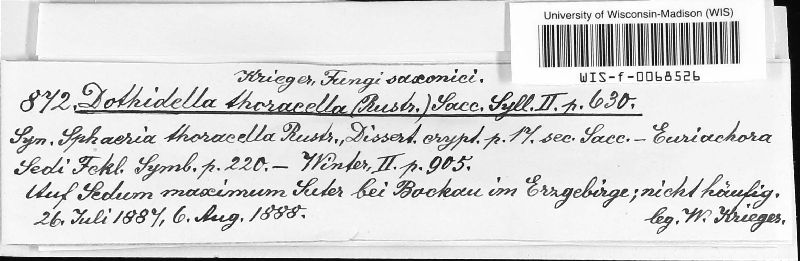 University of Wisconsin-Madison (WIS)
WIS-f-0068526
Krieger, Fungi saxonici.
872. Dothidella thoracella (Rustr.) Sacc. Syll. II. p. 630.
Syn. Sphaeria thoracella Rustr., Dissert. crypt. p. 17. sec. Sacc. – Euriachora
Sedi Fckl. Symb. p. 220. – Winter, II. p. 905.
Auf Sedum maximum Suter bei Bockau im Erzgebirge; nicht häufig.
26. Juli 1887, 6. Aug. 1888.
leg. W. Krieger.